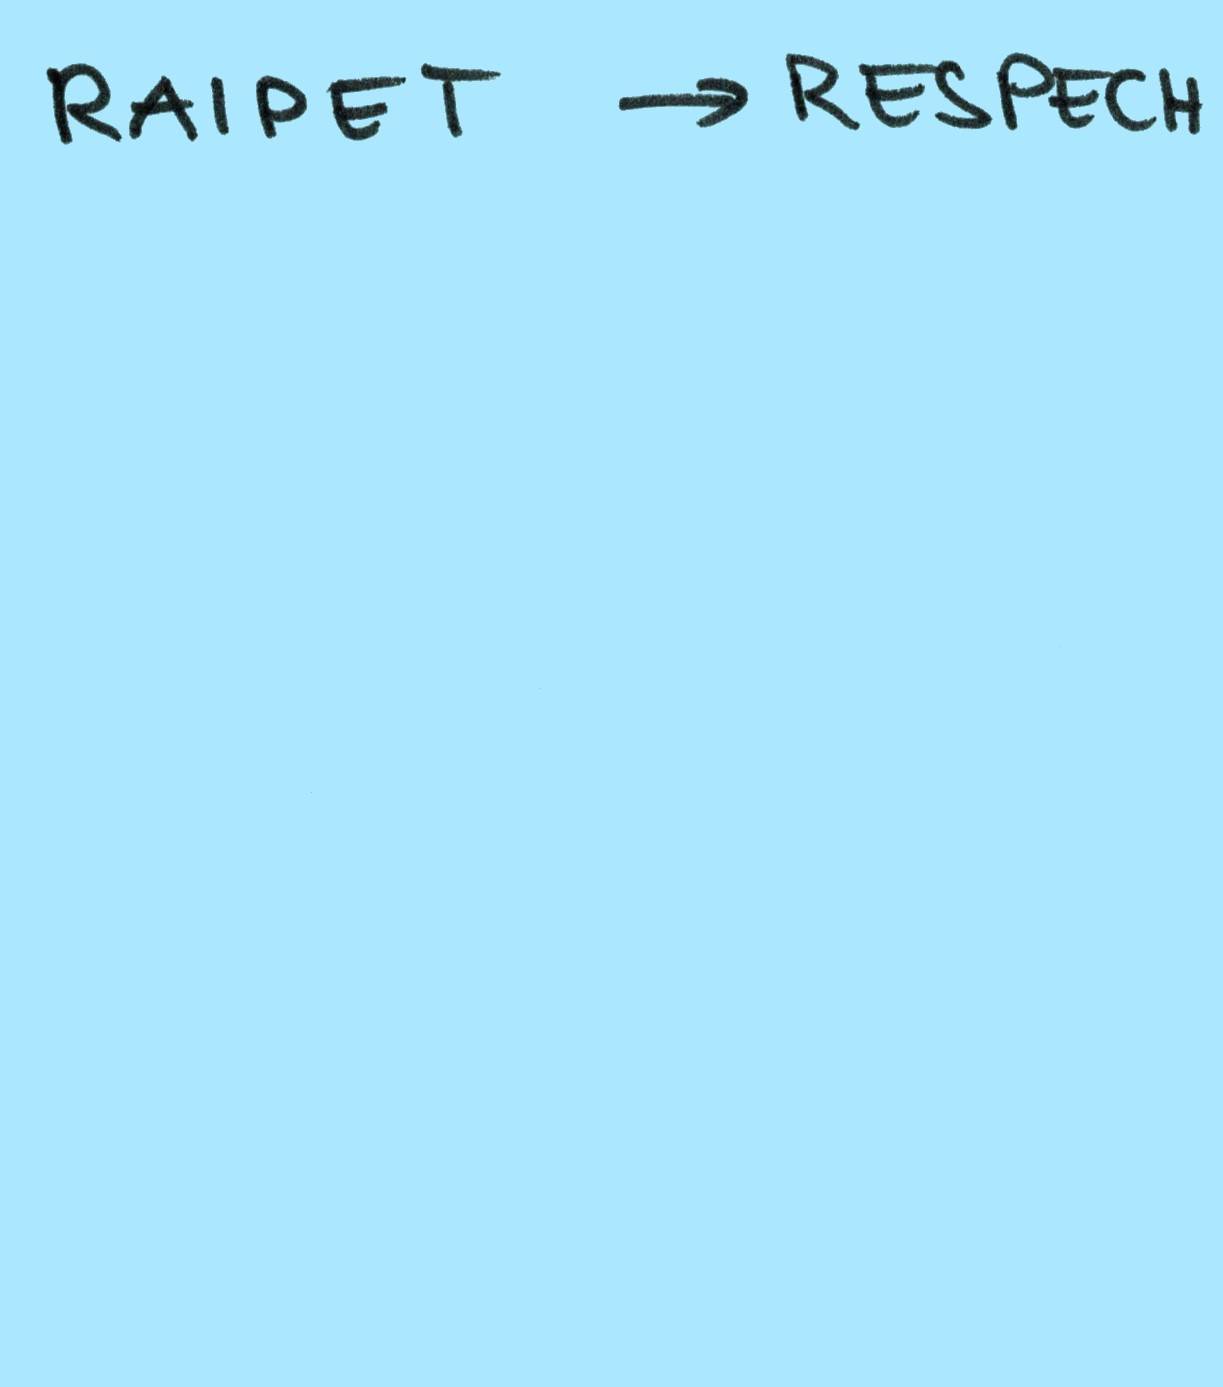 RAIPET → RESPECH